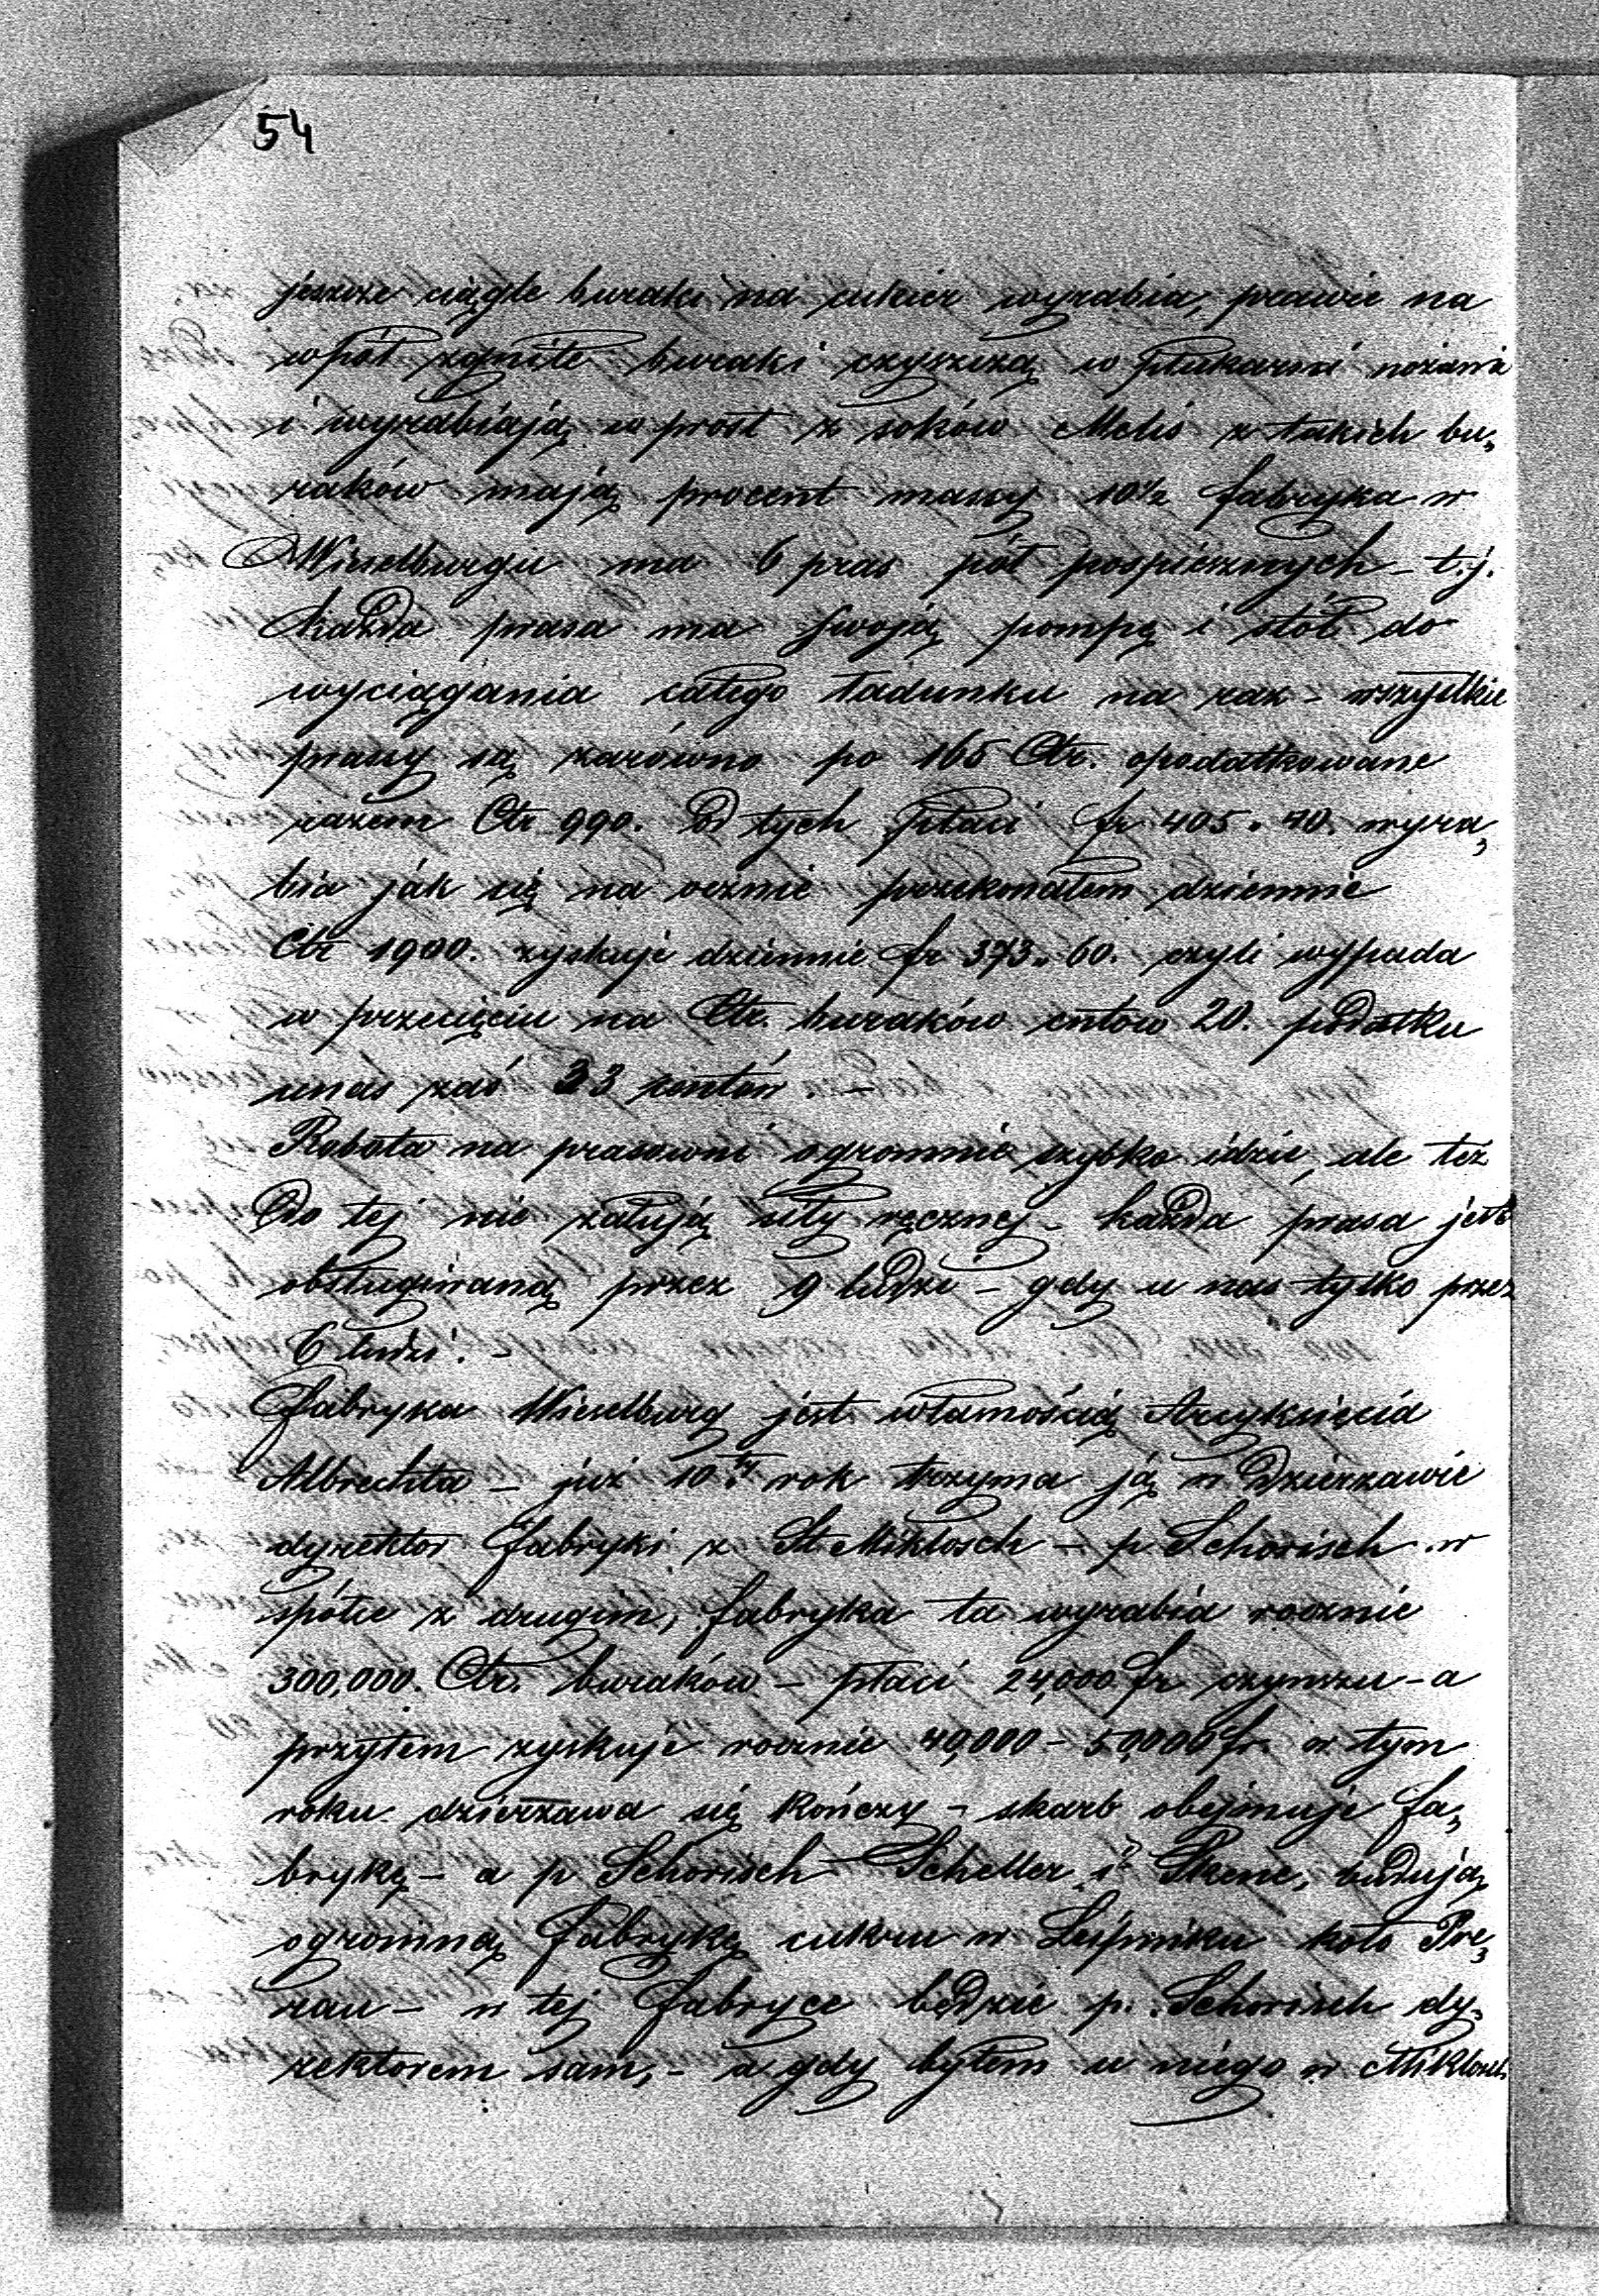 54
jeszcze ciągle buraki na cukier wyrabia, prawie na
wpół zgniłe buraki czyszczą w płukarni nożami
i wyrabiają w prost z soków Melis z takich bu,
raków mają procent massy 10½ fabryka w
Wieselburgu ma 6 pras pół pospiesznych – t.j.
każda prasa ma swoją pompę i stół do
wyciągania całego ładunku na raz – wszystkie
prassy są zarówno po 165 Ctr. opodatkowane
razem Ctr 990. Od tych płaci fr 405.40. wyra,
bia jak się na ocznie przekonałem dziennie
Ctr 1900. zyskuje dziennie fr 373.60. czyli wypada
w przecięciu na Ctr. buraków cntów 20. podatku
unas zaś 33 centów. –
Robota na prasowni ogromnie szybko idzie, ale też
do tej nie żałują siły ręcznej – każda prasa jest
obsługiwaną przez 9 ludzi – gdy u nas tylko przez
6 ludzi. –
Fabryka Wieselburg jest własnością Arcyksięcia
Albrechta – już 10.ty rok trzyma ją w dzierzawie
dyrektor fabryki z St Miklosch – p Schorisch w
spółce z drugim, fabryka ta wyrabia rocznie
300,000. Ctr. buraków – płaci 24,000 fr czynszu – a
przytem zyskuje rocznie 40,000 – 50,000 fr. w tym
roku dzierzawa się kończy – skarb obejmuje fa,
brykę – a p Schorisch Scheller i Skene, budują
ogromną Fabrykę cukru w Leipniku koło Pre,
rau – w tej Fabryce będzie p. Schorisch dy,
rektorem sam, – a gdy byłem u niego w Miklosch